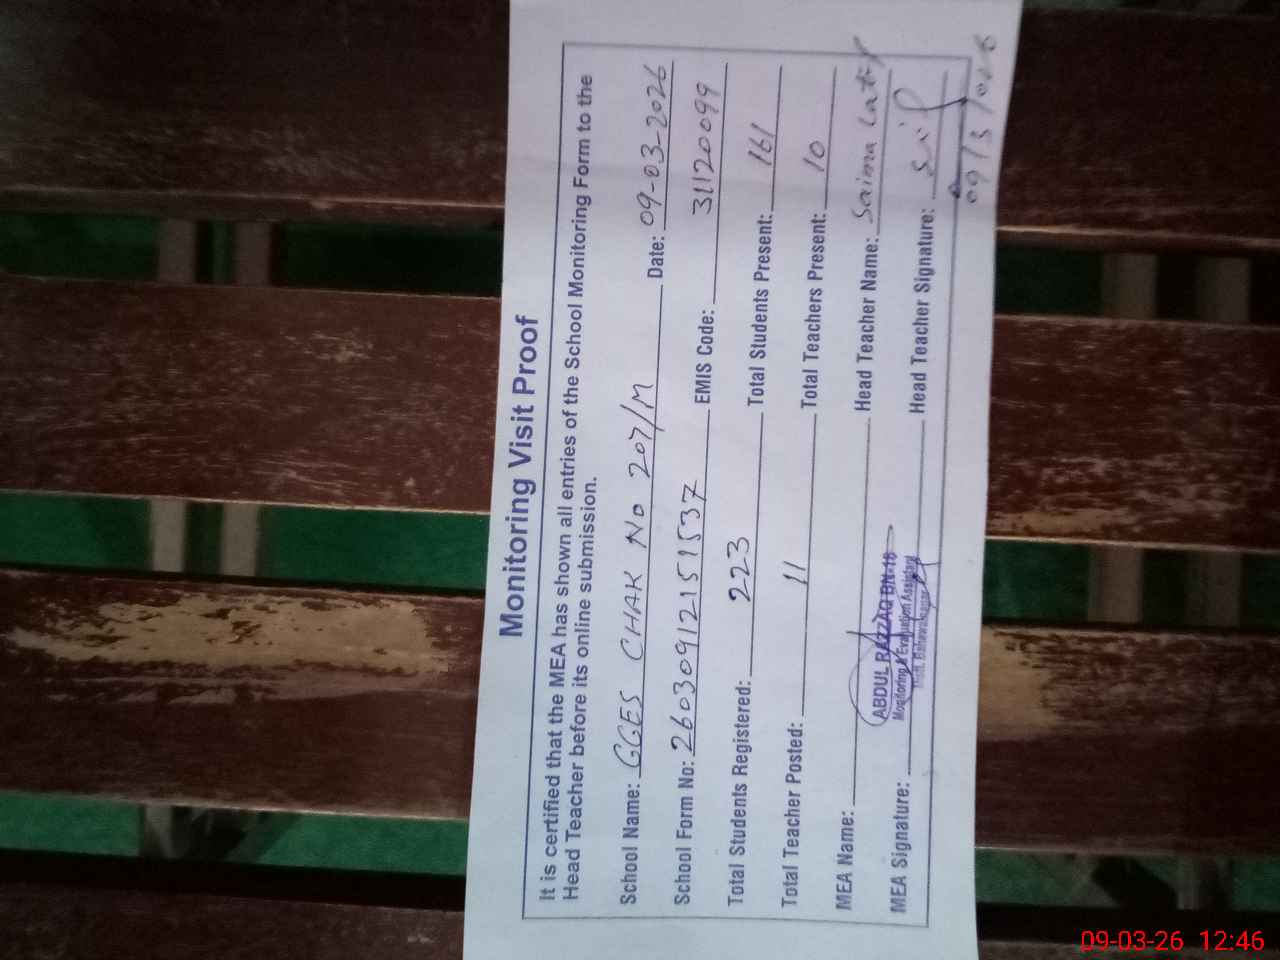 Monitoring Visit Proof
It is certified that the MEA has shown all entries of the School Monitoring Form to the
Head Teacher before its online submission.
School Name: GGES CHAK NO 207/M Date: 09-03-2026
School Form No: 26030912151537 EMIS Code: 31120099
Total Students Registered: 223 Total Students Present: 161
Total Teacher Posted: 11 Total Teachers Present: 10
MEA Name: Head Teacher Name: Saima Latif
ABDUL RAZZAQ BN-18
Monitoring & Evaluation Assistant
Distt. Bahawalnagar
MEA Signature: Head Teacher Signature:
09/3/2026
09-03-26 12:46